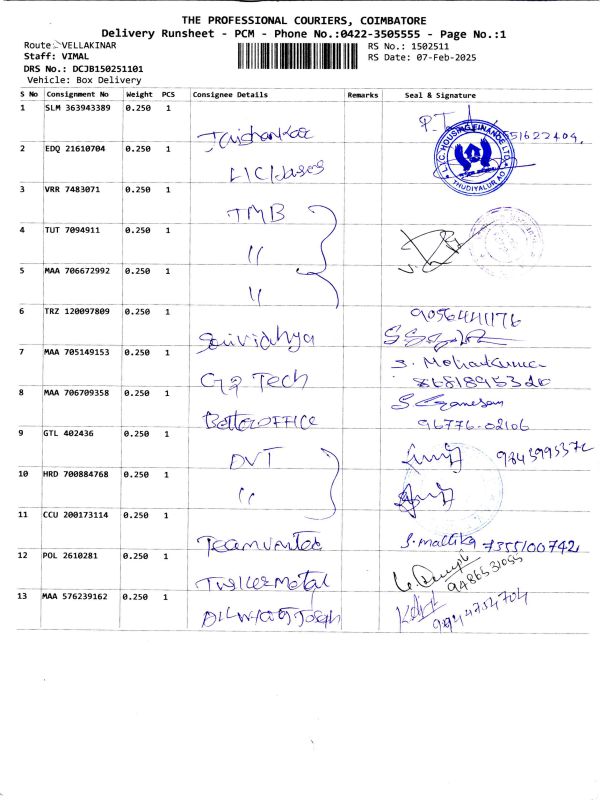 THE PROFESSIONAL COURIERS, COIMBATORE
Delivery Runsheet - PCM - Phone No.:0422-3505555 - Page No.:1
Route: VELLAKINAR
RS No.: 1502511
Staff: VIMAL
RS Date: 07-Feb-2025
DRS No.: DCJB150251101
Vehicle: Box Delivery
S No Consignment No Weight PCS Consignee Details Remarks Seal & Signature
1 SLM 363943389 0.250 1 Jaishankar
2 EDQ 21610704 0.250 1 LIC
L.I.C. HOUSING FINANCE LTD.
THUDIYALUR AO
3 VRR 7483071 0.250 1 TMB
4 TUT 7094911 0.250 1 "
5 MAA 706672992 0.250 1 "
6 TRZ 120097809 0.250 1 Srividhya
7 MAA 705149153 0.250 1 Tech S. Mohankumar
8 MAA 706709358 0.250 1 Better OFFICE S Ganesan
96776-02106
9 GTL 402436 0.250 1 DVT
10 HRD 700884768 0.250 1 "
11 CCU 200173114 0.250 1 S. mallika 7355100742
12 POL 2610281 0.250 1 Tusker Metal 9486531055
13 MAA 576239162 0.250 1 Joseph